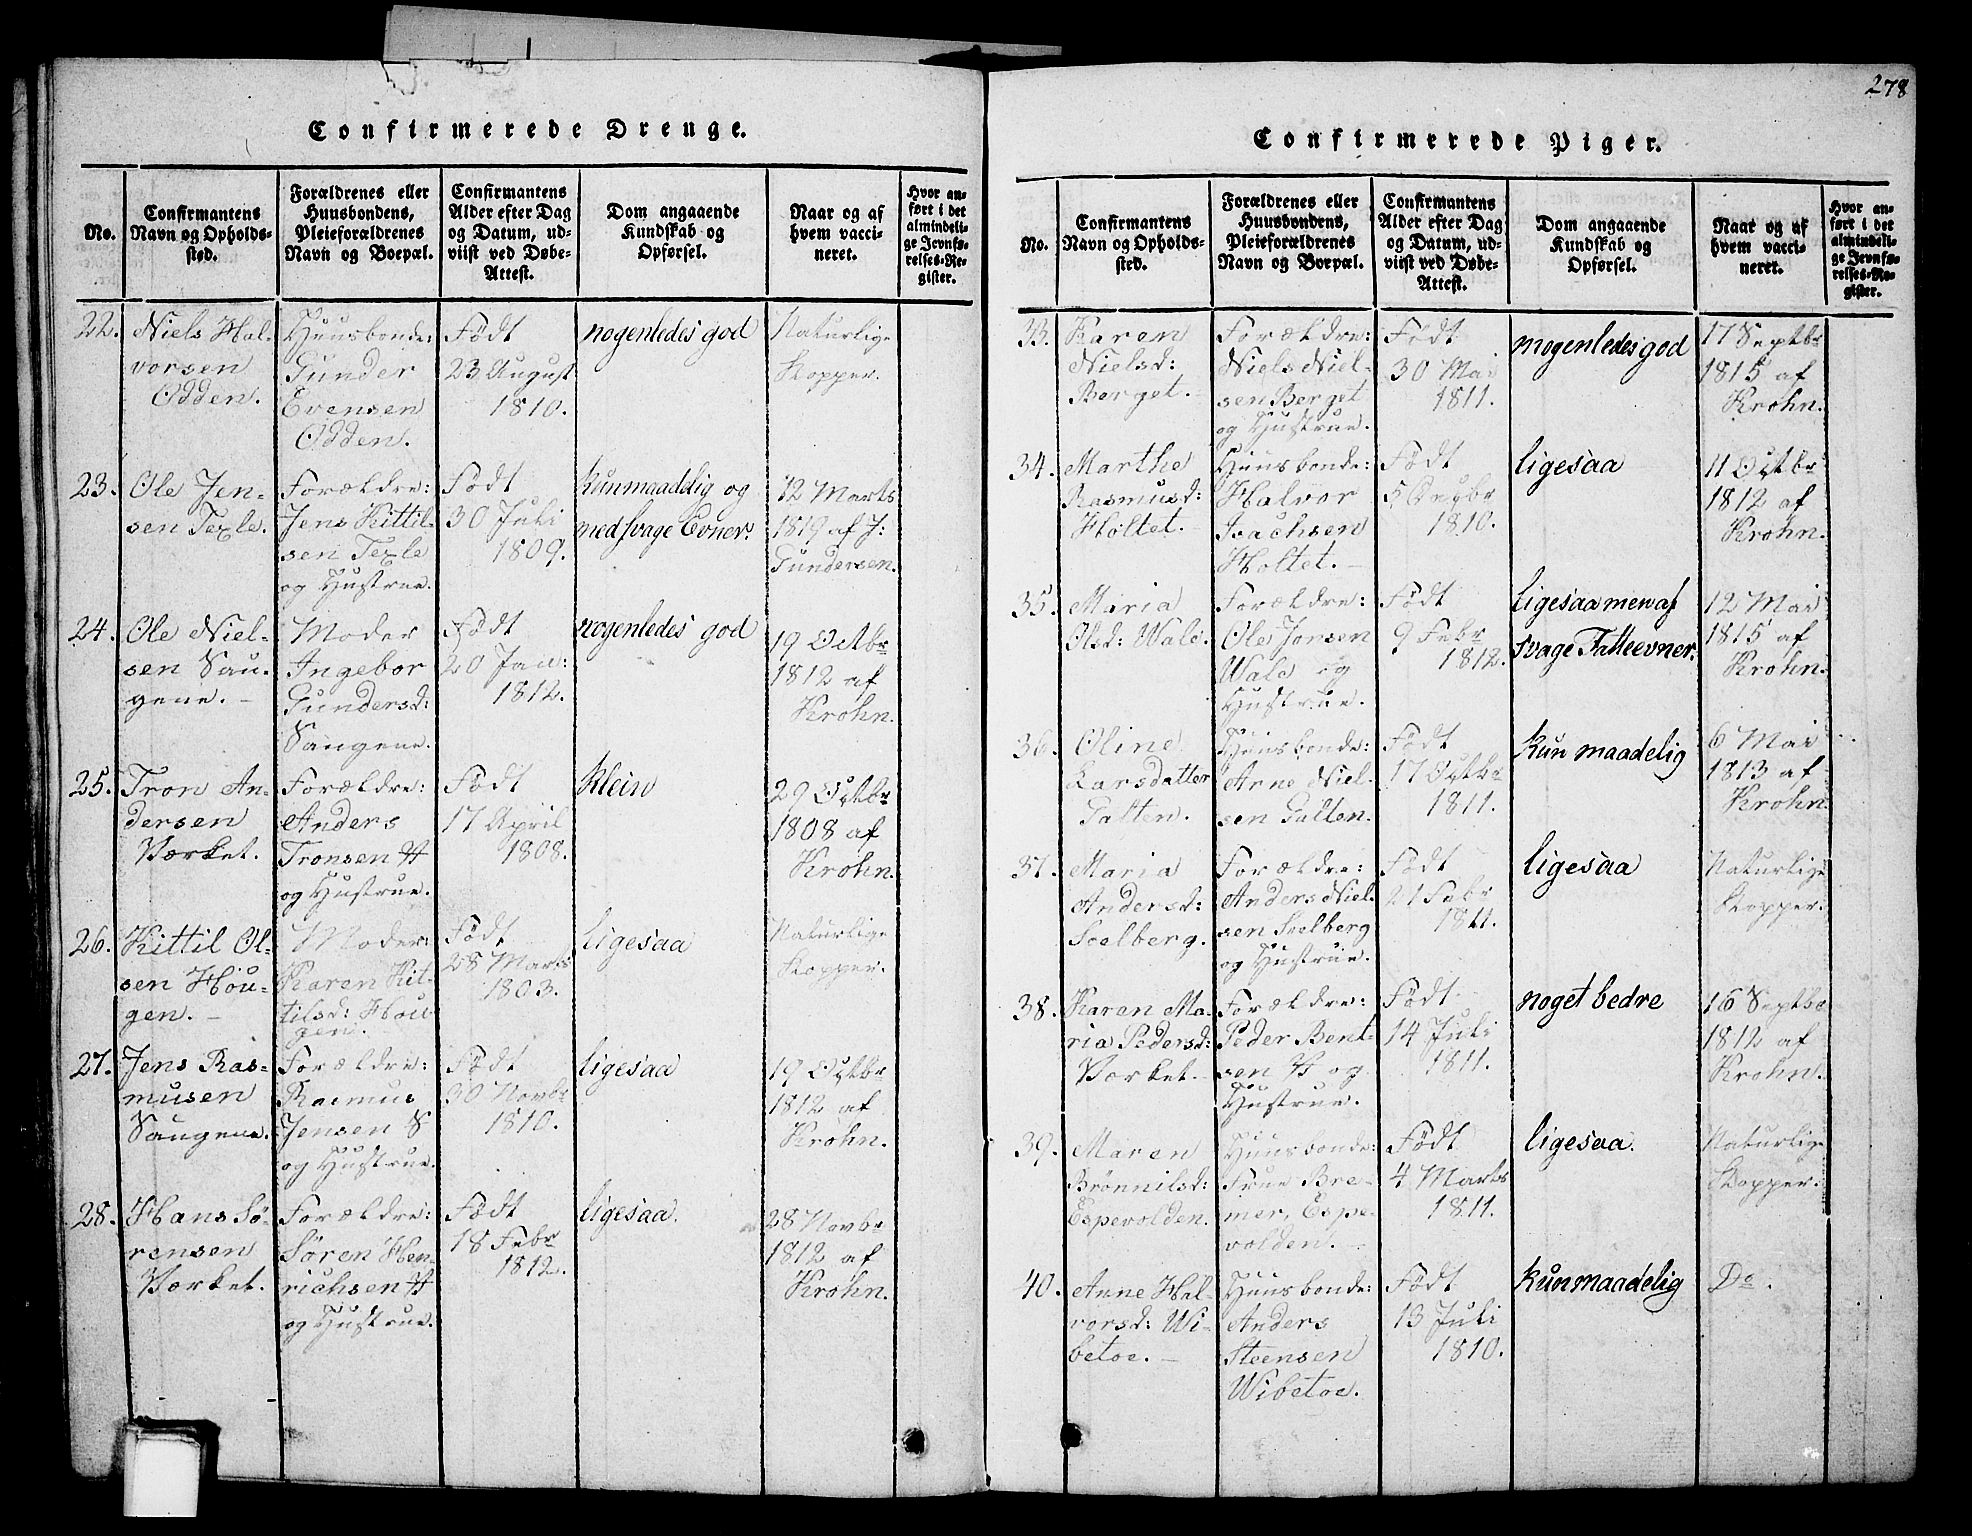 Confirmerede Drenge.
No.
Confirmantens
Navn og Opholds-
sted.
Forældrenes eller
Huusbondens,
Pleieforældrenes
Navn og Boepæl.
Confirmantens
Alder efter Dag
og Datum, ud-
viist ved Døbe-
Attest.
Dom angaaende
Kundskab og
Opførsel.
Naar og af
hvem vacci-
neret.
Hvor an-
ført i det
almindeli-
ge Jevnfø-
relses-Re-
gister.
22.
Niels Hal-
vorsen
Odden.
Huusbonde:
Gunder
Evensen
Odden.
Født
23 August
1810.
nogenledes god
Naturlige
Kopper.
23.
Ole Jen-
sen Texle.
Forældre:
Jens Kittil-
sen Texle
og Hustrue.
Født
30 Juli
1809.
kun maadelig og
med svage Evner.
12 Marts
1819 af J:
Gundersen.
24.
Ole Niel-
sen Sau-
gene. -
Moder
Ingebor
Gundersd:
Saugene.
Født
20 Jan:
1812.
nogenledes god
19 Octbr
1812 af
Krohn.
25.
Tron An-
dersen
Værket.
Forældre:
Anders
Tronsen V
og Hustrue.
Født
17 April
1808.
klein
29 Octbr
1808 af
Krohn.
26.
Kittil Ol-
sen Hou-
gen. -
Moder:
Karen Kit-
tilsd: Hou-
gen.
Født
28 Marts
1803.
ligesaa
Naturlige
Kopper.
27.
Jens Ras-
musen
Saugene.
Forældre:
Rasmus
Jensen S
og Hustrue.
Født
30 Novbr
1810.
ligesaa
19 Octbr
1812 af
Krohn.
28.
Hans Sö-
rensen
Værket.
Forældre:
Sören Hen-
richsen V
og Hustrue.
Født
18 Febr
1812.
ligesaa.
28 Novbr
1812 af
Krohn.
278
Confirmerede Piger.
No.
Confirmantens
Navn og Opholds-
sted.
Forældrenes eller
Huusbondens,
Pleieforældrenes
Navn og Boepæl.
Confirmantens
Alder efter Dag
og Datum, ud-
viist ved Døbe-
Attest.
Dom angaaende
Kundskab og
Opførsel.
Naar og af
hvem vacci-
neret.
Hvor an-
ført i det
almindeli-
ge Jevnfø-
relses-Re-
gister.
33.
Karen
Nielsd:
Berget. -
Forældre:
Niels Niel-
sen Berget
og Hustrue.
Født
30 Mai
1811.
nogenledes god
17 Septbr
1815 af
Krohn.
34.
Marthe
Rasmusd:
Holtet. -
Huusbonde:
Halvor
Isachsen
Holtet. -
Født
1810.
ligesaa
11 Octbr
1812 af
Krohn.
35.
Maria
Olsd: Wale.
Forældre:
Ole Jonsen
Wale og
Hustrue.
Født
9 Febr
1812.
ligesaa men af
svage Fatteevner.
12 Mai
1815 af
Krohn.
36.
Oline
Larsdatter
Galten.
Huusbonde:
Arne Niel-
sen Gulten.
Født
17 Octbr
1811.
kun maadelig
6 Mai
1813 af
Krohn
37.
Maria
Andersd:
Soelberg.
Forældre:
Anders Niel-
sen Soelberg
og Hustrue.
Født
21 Febr
1811.
ligesaa
Naturlige
Kopper.
38.
Karen Ma-
ria Pedersd:
Værket. -
Forældre:
Peder Bent-
sen V og
Hustrue.
Født
14 Juli
1811.
noget bedre
16 Septbr
1812 af
Krohn.
39.
Maren
Brönnilsd:
Espevolden.
Huusbonde:
Frue Bre-
mer, Espe-
volden. -
Født
4 Marts
1811.
ligesaa.
Naturlige
Kopper.
40.
Anne Hal-
vorsd: Wi-
betoe. -
Huusbonde:
Anders
Steensen
Wibetoe.
Født
13 Juli
1810.
kun maadelig
Do.